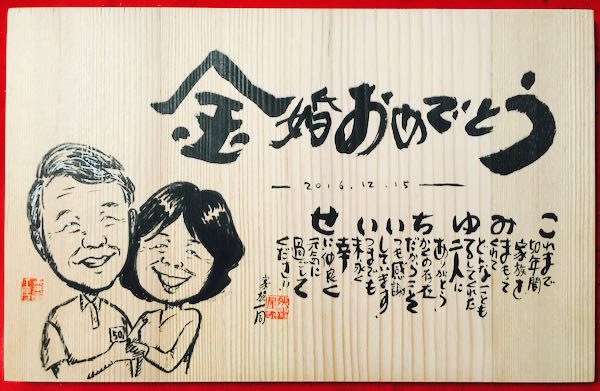 金婚おめでとう
2016.12.15
せいいちゆみこ
これまで
50年間
家族を
まもって
くれて
どんなことも
てらしてくれた
二人に
ありがとう
だからこそ
つも感謝
しています!
つまでも
末永く
幸
に仲良く
元気に
過ごして
ください!!
家族一同
50